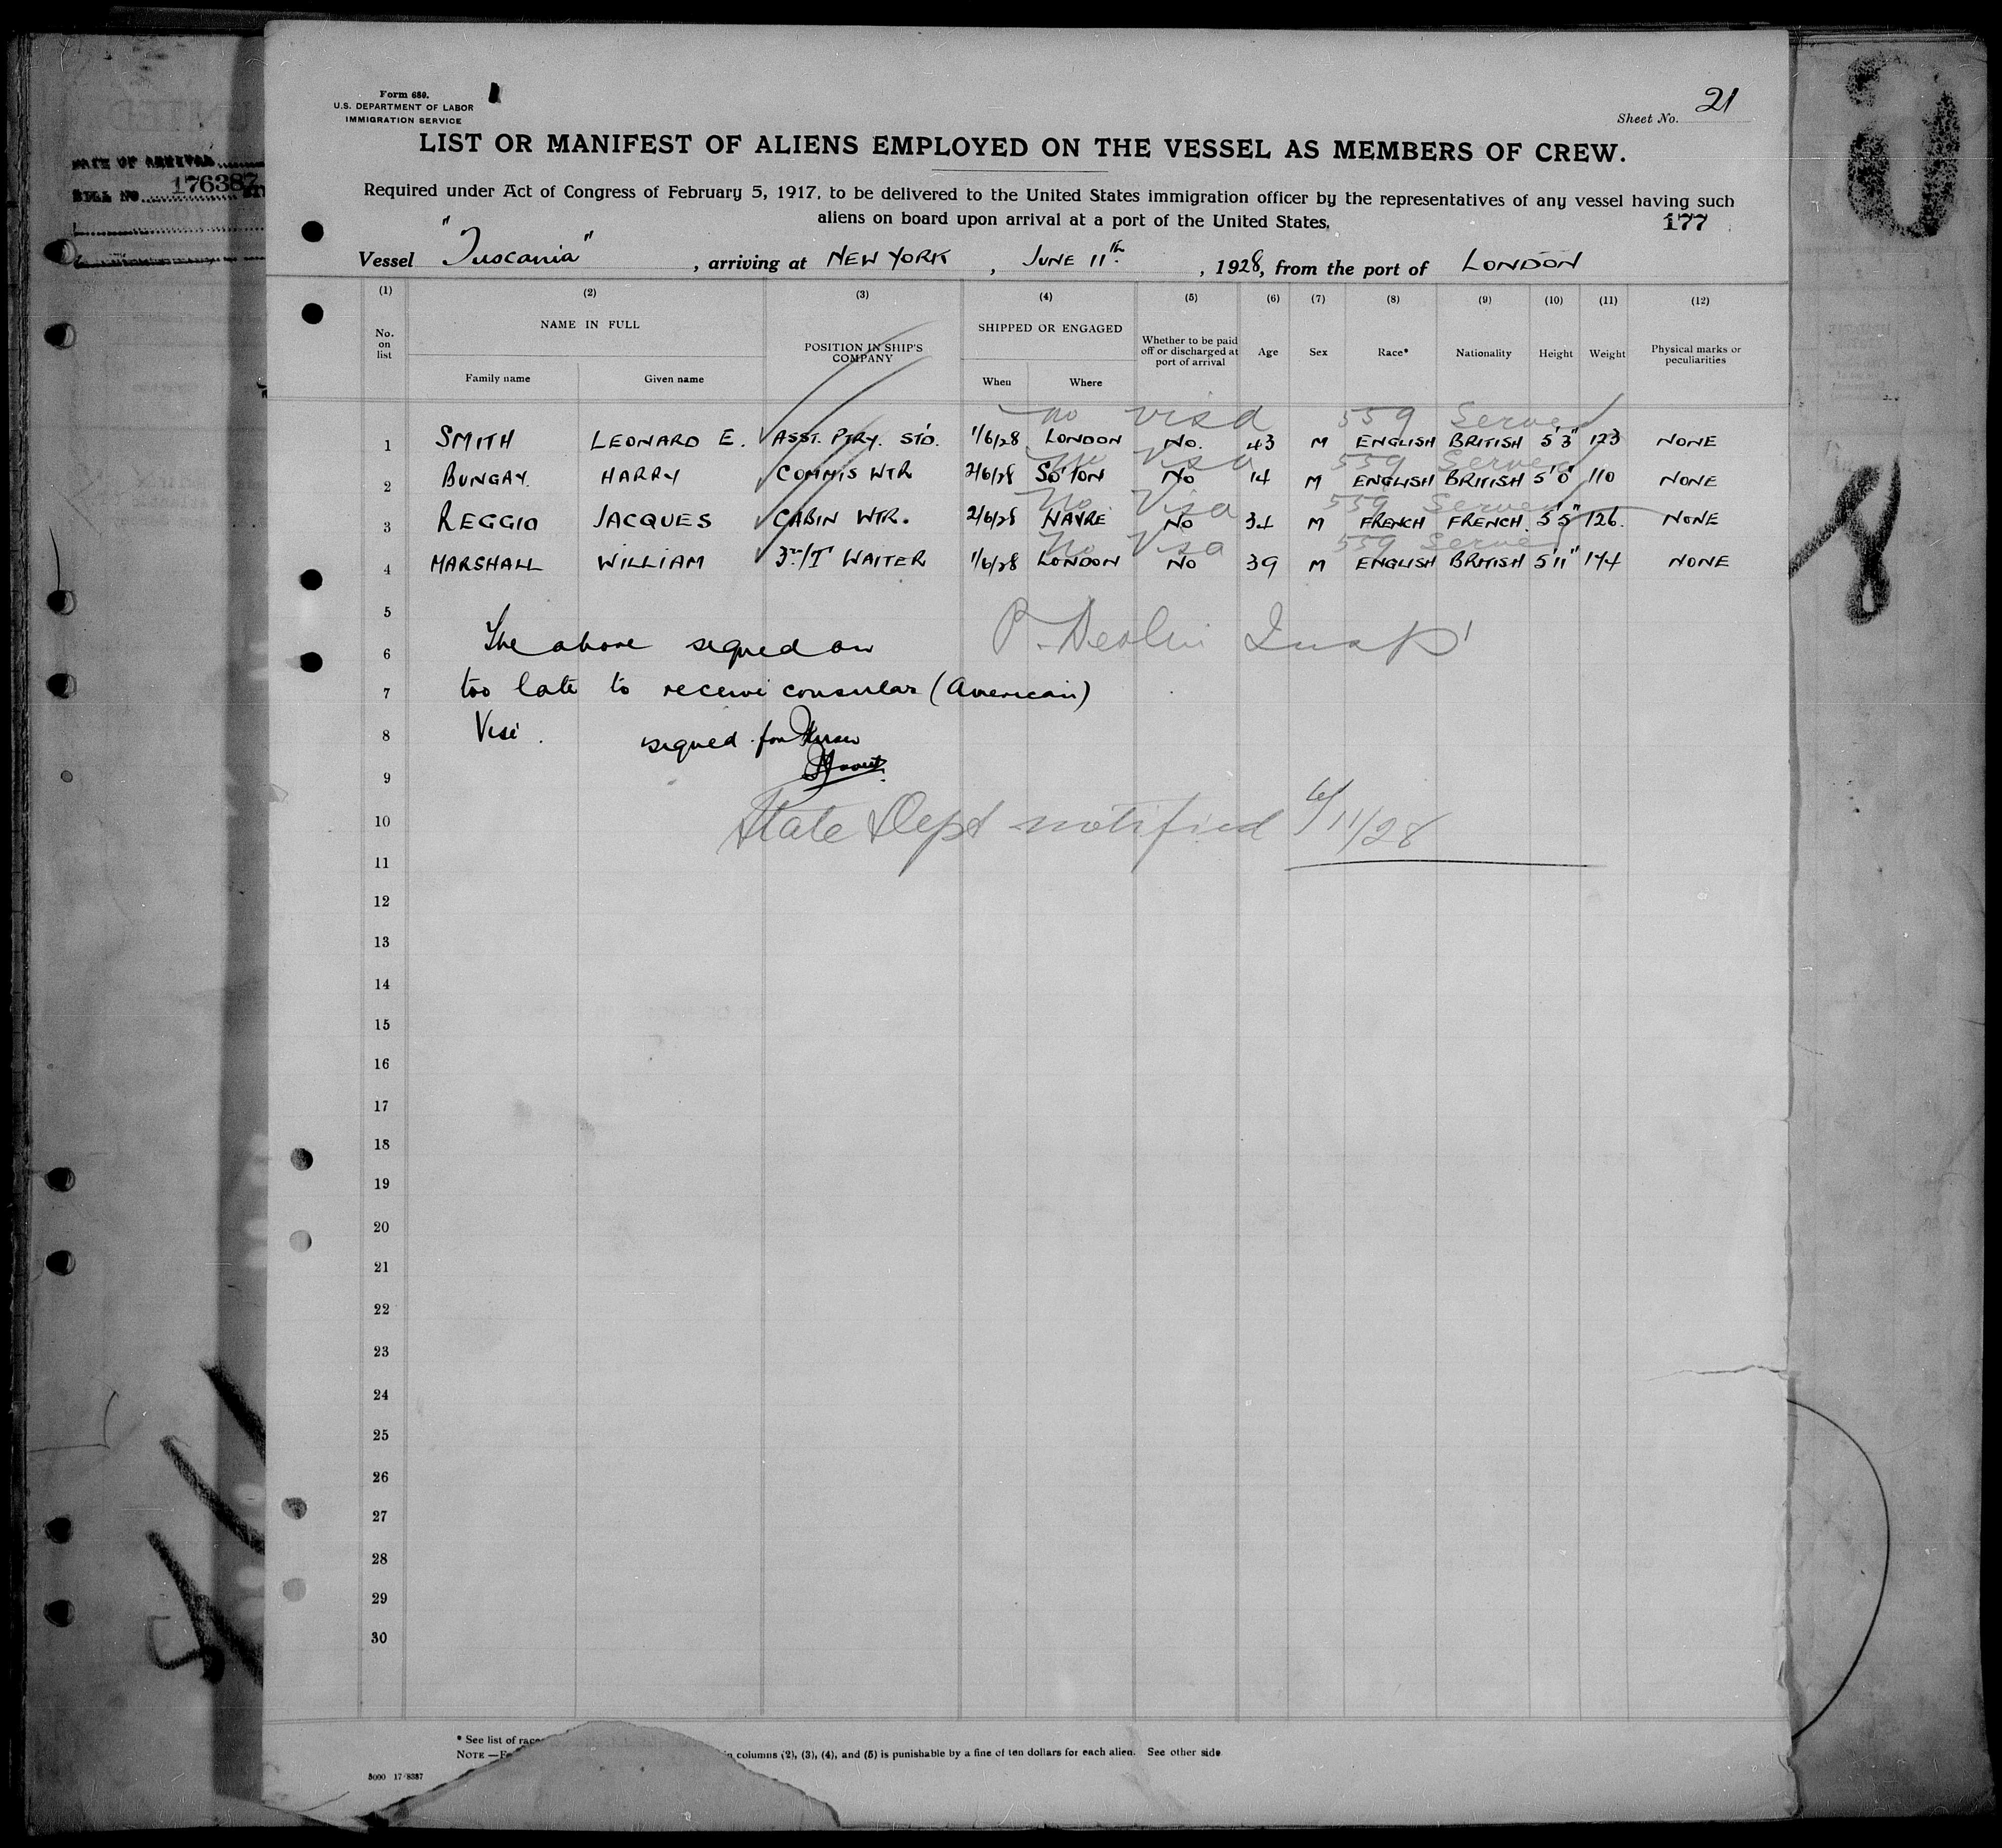 Form 680.
U.S. DEPARTMENT OF LABOR
IMMIGRATION SERVICE
Sheet No. 21
LIST OR MANIFEST OF ALIENS EMPLOYED ON THE VESSEL AS MEMBERS OF CREW.
DATE OF ARRIVAL
BILL NO 176387
Required under Act of Congress of February 5, 1917, to be delivered to the United States immigration officer by the representatives of any vessel having such
aliens on board upon arrival at a port of the United States.
177
Vessel "Tuscania", arriving at NEW YORK, JUNE 11th, 1928, from the port of LONDON
(1) (2) (3) (4) (5) (6) (7) (8) (9) (10) (11) (12)
No. on list NAME IN FULL POSITION IN SHIP'S COMPANY SHIPPED OR ENGAGED Whether to be paid off or discharged at port of arrival Age Sex Race* Nationality Height Weight Physical marks or peculiarities
Family name Given name When Where
no visa 559 Served
1 SMITH LEONARD E. ASST. PTRY. STD. 1/6/28 LONDON No. 43 M ENGLISH BRITISH 5'3" 123 NONE
no Visa 559 Served
2 BUNGAY. HARRY COMMIS WTR 2/6/28 SO'TON No 14 M ENGLISH BRITISH 5'0" 110 NONE
No Visa 559 Served
3 REGGIO JACQUES CABIN WTR. 2/6/28 HAVRE No 34 M FRENCH FRENCH. 5'5" 126. NONE
No Visa 559 Served
4 MARSHALL WILLIAM 3rd/T WAITER 1/6/28 LONDON No 39 M ENGLISH BRITISH 5'11" 174 NONE
5
6 The above signed on P. Devlin Insp
7 too late to receive consular (American)
8 Visé. signed for Purser
9
10 State Dept notified 6/11/28
11
12
13
14
15
16
17
18
19
20
21
22
23
24
25
26
27
28
29
30
* See list of race
NOTE.—F in columns (2), (3), (4), and (5) is punishable by a fine of ten dollars for each alien. See other side
17-8387